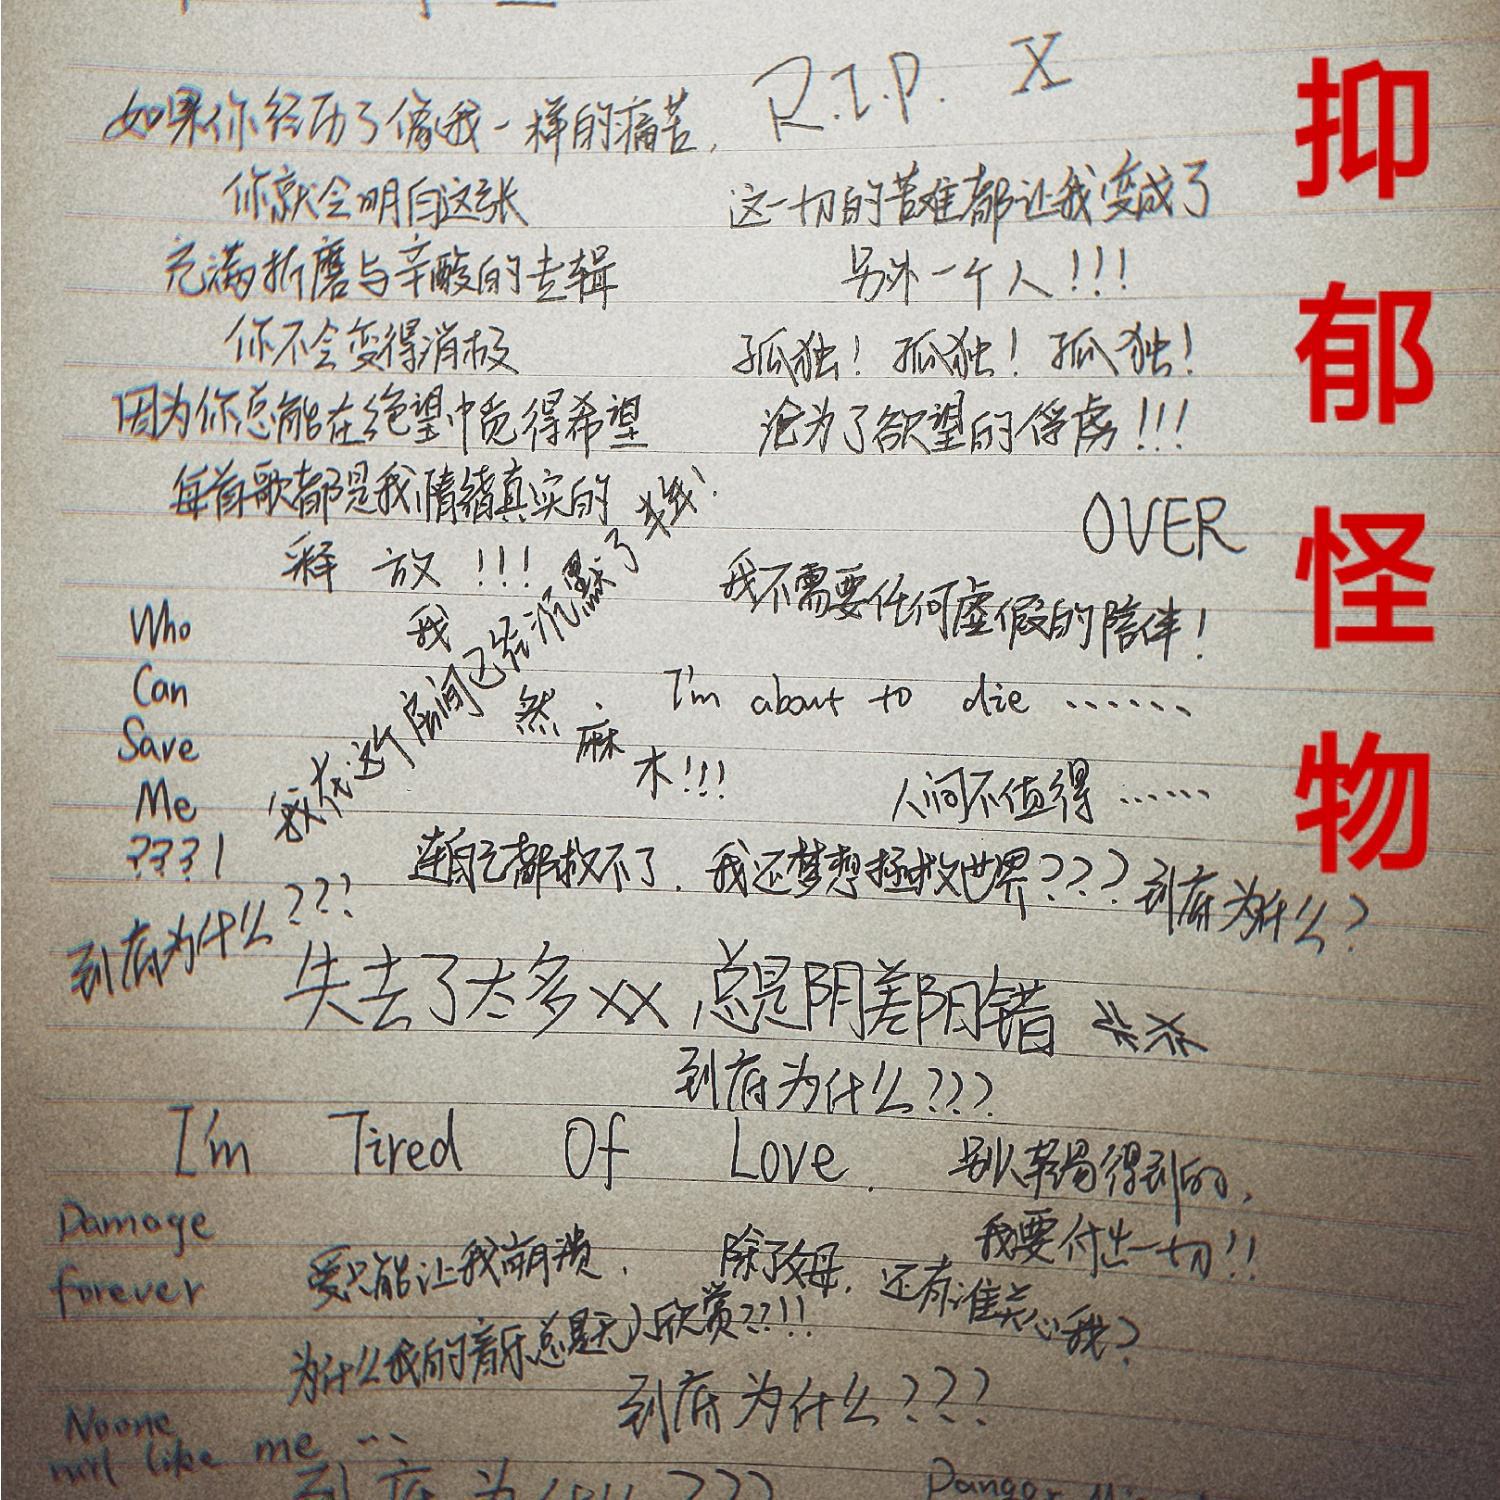 R.I.P. X
如果你经历了像我一样的痛苦,
你就会明白这张
充满折磨与辛酸的专辑
你不会变得消极
因为你总能在绝望中觅得希望
每首歌都是我情绪真实的
释放!!!
这一切的苦难都让我变成了
另外一个人!!!
孤独!孤独!孤独!
沦为了欲望的俘虏!!!
OVER
我不需要任何虚假的陪伴!
Who
Can
Save
Me
???!
我在这个房间已经沉默了
我
然
麻
木!!!
I'm about to die ......
人间不值得 ......
连自己都救不了.我还梦想拯救世界???
到底为什么?
到底为什么???
失去了太多xx,总是阴差阳错
到底为什么???
I'm Tired Of Love.
别人轻易得到的,
我要付出一切!!
Damage
forever
爱只能让我崩溃.
除了父母,还有谁关心我?
为什么我的音乐总是无人欣赏??!!
到底为什么???
Noone
like me ...
到底为什么???
Danger
抑郁怪物